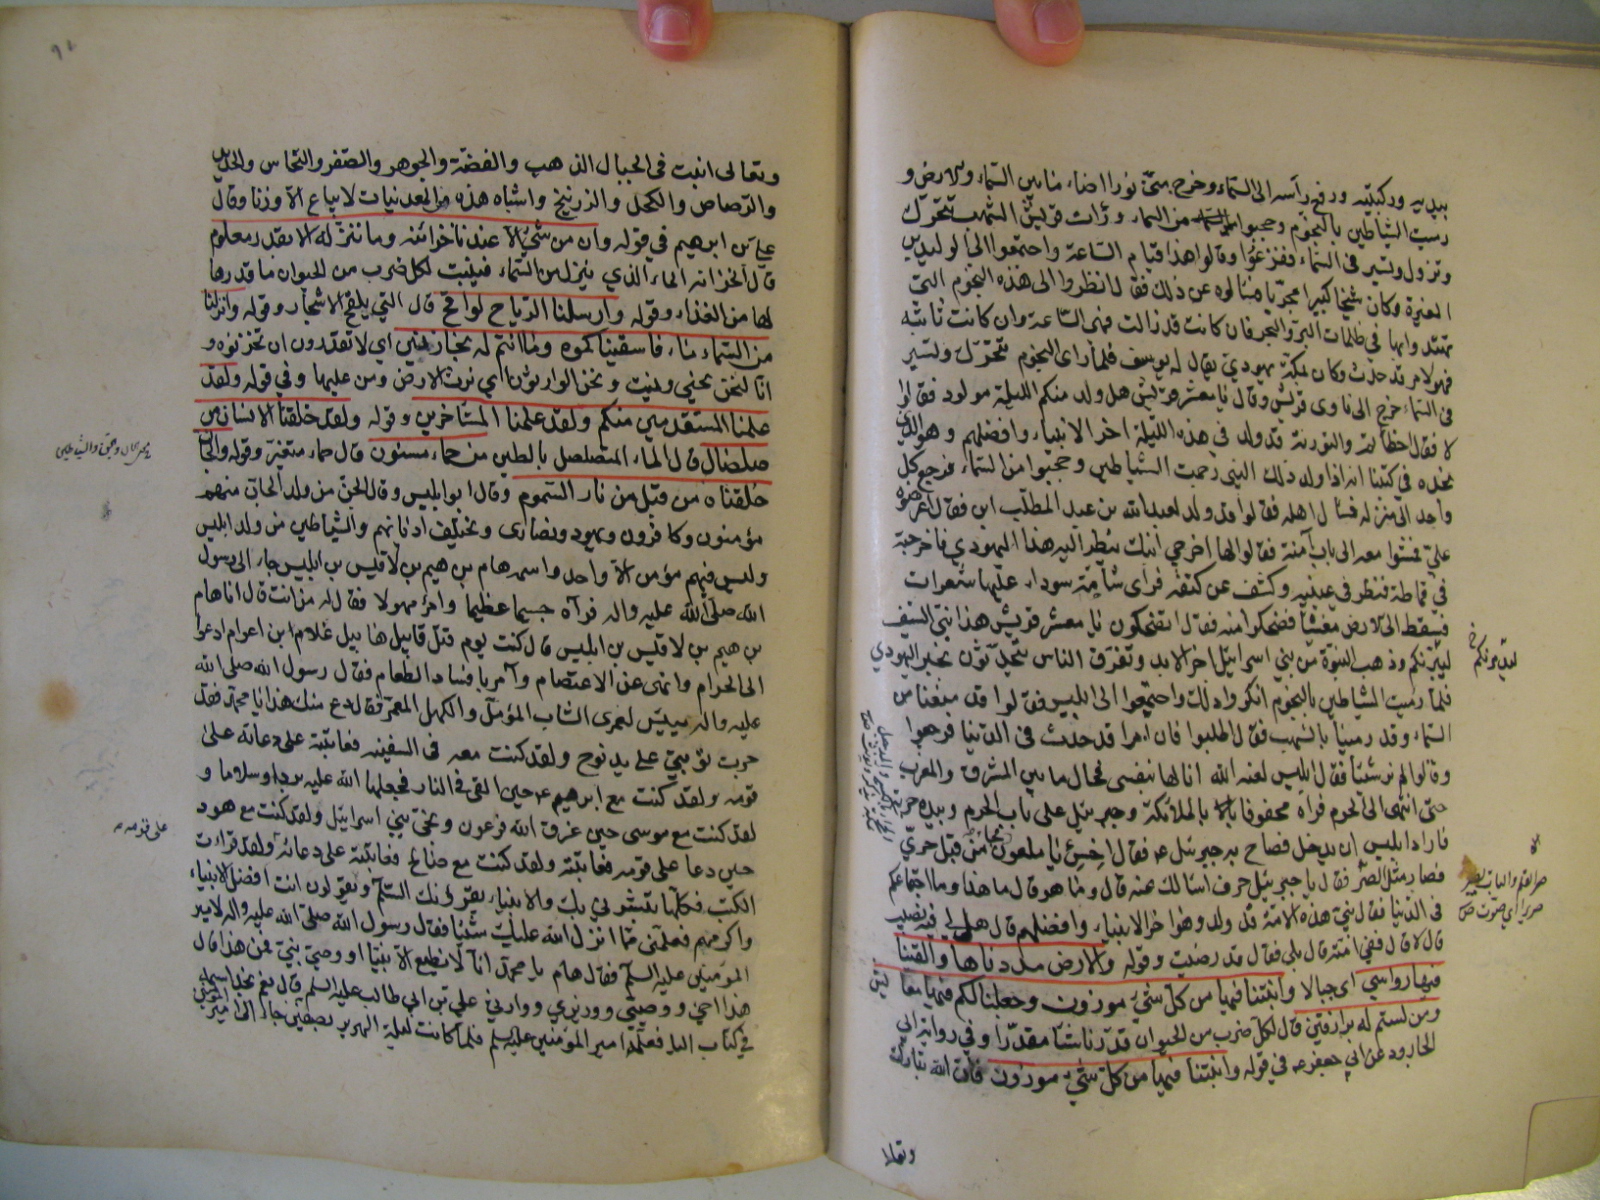 بيديه وركبتيه ورفع رأسه الى السماء وخرج منّي نور اضاء ما بين السماء والارض و
رميت الشياطين بالنجوم وحجبوا من السماء ورأت قريش الشهب تتحرّك
وتزول وتسير فى السماء ففزعوا وقالوا هذا قيام الساعة واجتمعوا الى الوليد بن
المغيرة وكان شيخا كبيرا مجرّبا فسالوه عن ذلك فقال انظروا الى هذه النجوم التى
تهتدوا بها فى ظلمات البر والبحر فان كانت قد زالت فهى الساعة وان كانت ثابتة
فهو لامر قد حدث وكان بمكة يهودي يقال له يوسف فلما رأى النجوم تتحرّك وتسير
فى السماء خرج الى نادى قريش وقال يا معشر قريش هل ولد منكم الليلة مولود فقالوا
لا فقال اخطأتم والتورية قد ولد في هذه الليلة اخر الانبياء وافضلهم وهو الذي
نجده فى كتبنا انه اذا ولد ذلك النبى رجمت الشياطين وحجبوا من السماء فرجع كل
واحد الى منزله فسأل اهله فقالوا قد ولد لعبد الله بن عبد المطلب ابن فقال اعرضوه
علىّ فمشوا معه الى باب آمنة فقالوا لها اخرجي ابنك ينظر اليه هذا اليهودي فاخرجته
في قماطه فنظر في عينيه وكشف عن كتفه فرأى شامة سوداء عليها شعرات
فسقط الى الارض مغشيا فضحكوا منه فقال اتضحكون يا معشر قريش هذا نبى السيف
ليبيرنكم وذهب النبوة من بني اسرائيل اخر الابد وتفرق الناس يتحدّثون بخبر اليهودي
فلما رميت الشياطين بالنجوم انكروا ذلك واجتمعوا الى ابليس فقالوا قد منعنا من
السماء وقد رمينا بالشهب فقال اطلبوا فان امرا قد حدث فى الدنيا فرجعوا
وقالوا لم نر شيئا فقال ابليس لعنه الله انا لها بنفسى فجال ما بين المشرق والمغرب
حتى انتهى الى الحرم فرآه محفوفا بالملائكة وجبرئيل على باب الحرم وبيده حربة
فاراد ابليس ان يدخل فصاح به جبرئيل ع فقال اخسئ يا ملعون فجاء من قبل حرى
فصار مثل الصر فقال يا جبرئيل حرف اسالك عنه قال وما هو قال ما هذا وما اجتماعكم
فى الدنيا فقال نبيّ هذه الامة قد ولد وهو اخر الانبياء وافضلهم قال هل لي فيه نصيب
قال لا قال ففى امته قال بلى فقال قد رضيت وقوله والارض مددناها والقينا
فيها رواسي اى جبالا وانبتنا فيها من كل شئ موزون وجعلنا لكم فيها معايش
ومن لستم له برازقين قال لكل ضرب من الحيوان قدّرنا شيئا مقدّرا وفي رواية ابي
الجارود عن ابي جعفر ع في قوله وانبتنا فيها من كل شئ موزون فان الله تبارك
وتعالى
ليبيرنكم
صر القلم والباب يصر
صريرا اي صوت ص
وتعالى انبت فى الجبال الذهب والفضّة والجوهر والصّفر والنحاس والحديد
والرّصاص والكحل والزرنيخ واشباه هذه من المعدنيات لا يباع الا وزنا وقال
علي بن ابرهيم في قوله وان من شئ الا عندنا خزائنه وما ننزّله الا بقدر معلوم
قال الخزانة الماء الذي ينزل من السماء فينبت لكل ضرب من الحيوان ما قدر
لها من الغذاء وقوله وارسلنا الرياح لواقح قال التي يلقح الاشجار وقوله وانزلنا
من السماء ماء فاسقيناكموه وما انتم له بخازنين اي لا تقدرون ان تخزنوه و
انا لنحن نحيي ونميت ونحن الوارثون اي نرث الارض ومن عليها وفي قوله ولقد
علمنا المستقدمين منكم ولقد علمنا المستأخرين وقوله ولقد خلقنا الانسان من
صلصال قال الماء المتصلصل بالطين من حماء مسنون قال حماء متغيّر وقوله والجان
خلقناه من قبل من نار السموم وقال ابو ابليس وقال الجن من ولد الجان منهم
مؤمنون وكافرون ويهود ونصارى وتختلف اديانهم والشياطين من ولد ابليس
وليس فيهم مؤمن الا واحد واسمه هام بن هيم بن لاقيس بن ابليس جاء الى رسول
الله صلى الله عليه واله فرآه جسيما عظيما وامرؤ مهولا فقال له من انت قال انا هام
بن هيم بن لاقيس بن ابليس قال كنت يوم قتل قابيل هابيل غلام ابن اعوام ادعوا
الى الحرام وانهى عن الاعتصام وآمر بافساد الطعام فقال رسول الله صلى الله
عليه واله بيئس لعمرى الشاب المؤمّل والكهل المعمّر فقال دع عنك هذا يا محمد فقد
جرت توبتي على يد نوح ولقد كنت معه فى السفينة فعاتبته على دعائه على
قومه ولقد كنت مع ابرهيم ع حين القى في النار فجعلها الله عليه بردا وسلاما و
لقد كنت مع موسى حين غرق الله فرعون ونجّى بني اسرائيل ولقد كنت مع هود
حين دعا على قومه فعاتبته ولقد كنت مع صالح فعاتبته على دعائه ولقد قرأت
الكتب فكلّها تبشرني بك والانبياء يقرؤنك السلم ويقولون انت افضل الانبياء
واكرمهم فعلّمني مما انزل الله عليك شيئا فقال رسول الله صلى الله عليه واله لامير
المؤمنين عليه السلم فقال هام يا محمد انا لا نطيع الا نبيا او وصيّ نبيّ فمن هذا قال
هذا اخي ووصيّي ووزيري ووارثي علي بن ابي طالب عليه السلم قال نعم نجد اسمه
في كتاب اليا فعلّمه امير المؤمنين عليه السلم فلما كانت ليلة الهرير بصفين جاء الى امير المؤمنين
على قومه